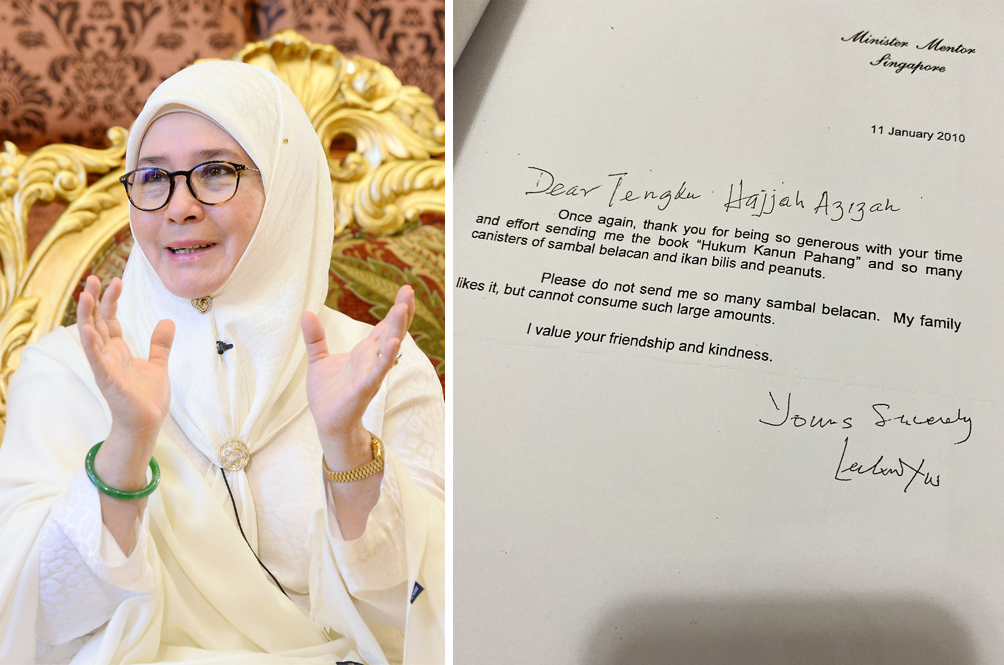 Minister Mentor
Singapore
11 January 2010
Dear Tengku Hajjah Azizah
Once again, thank you for being so generous with your time
and effort sending me the book "Hukum Kanun Pahang" and so many
canisters of sambal belacan and ikan bilis and peanuts.
Please do not send me so many sambal belacan. My family
likes it, but cannot consume such large amounts.
I value your friendship and kindness.
Yours Sincerely